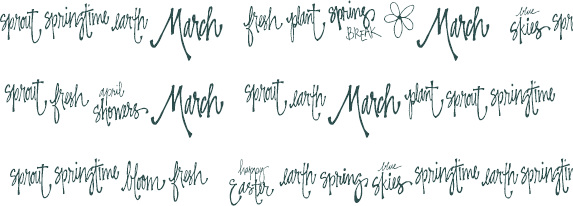 sprout springtime earth March fresh plant spring BREAK March blue skies spr
sprout fresh april showers March sprout earth March plant sprout springtime
sprout springtime bloom fresh happy Easter earth spring blue skies springtime earth springtim